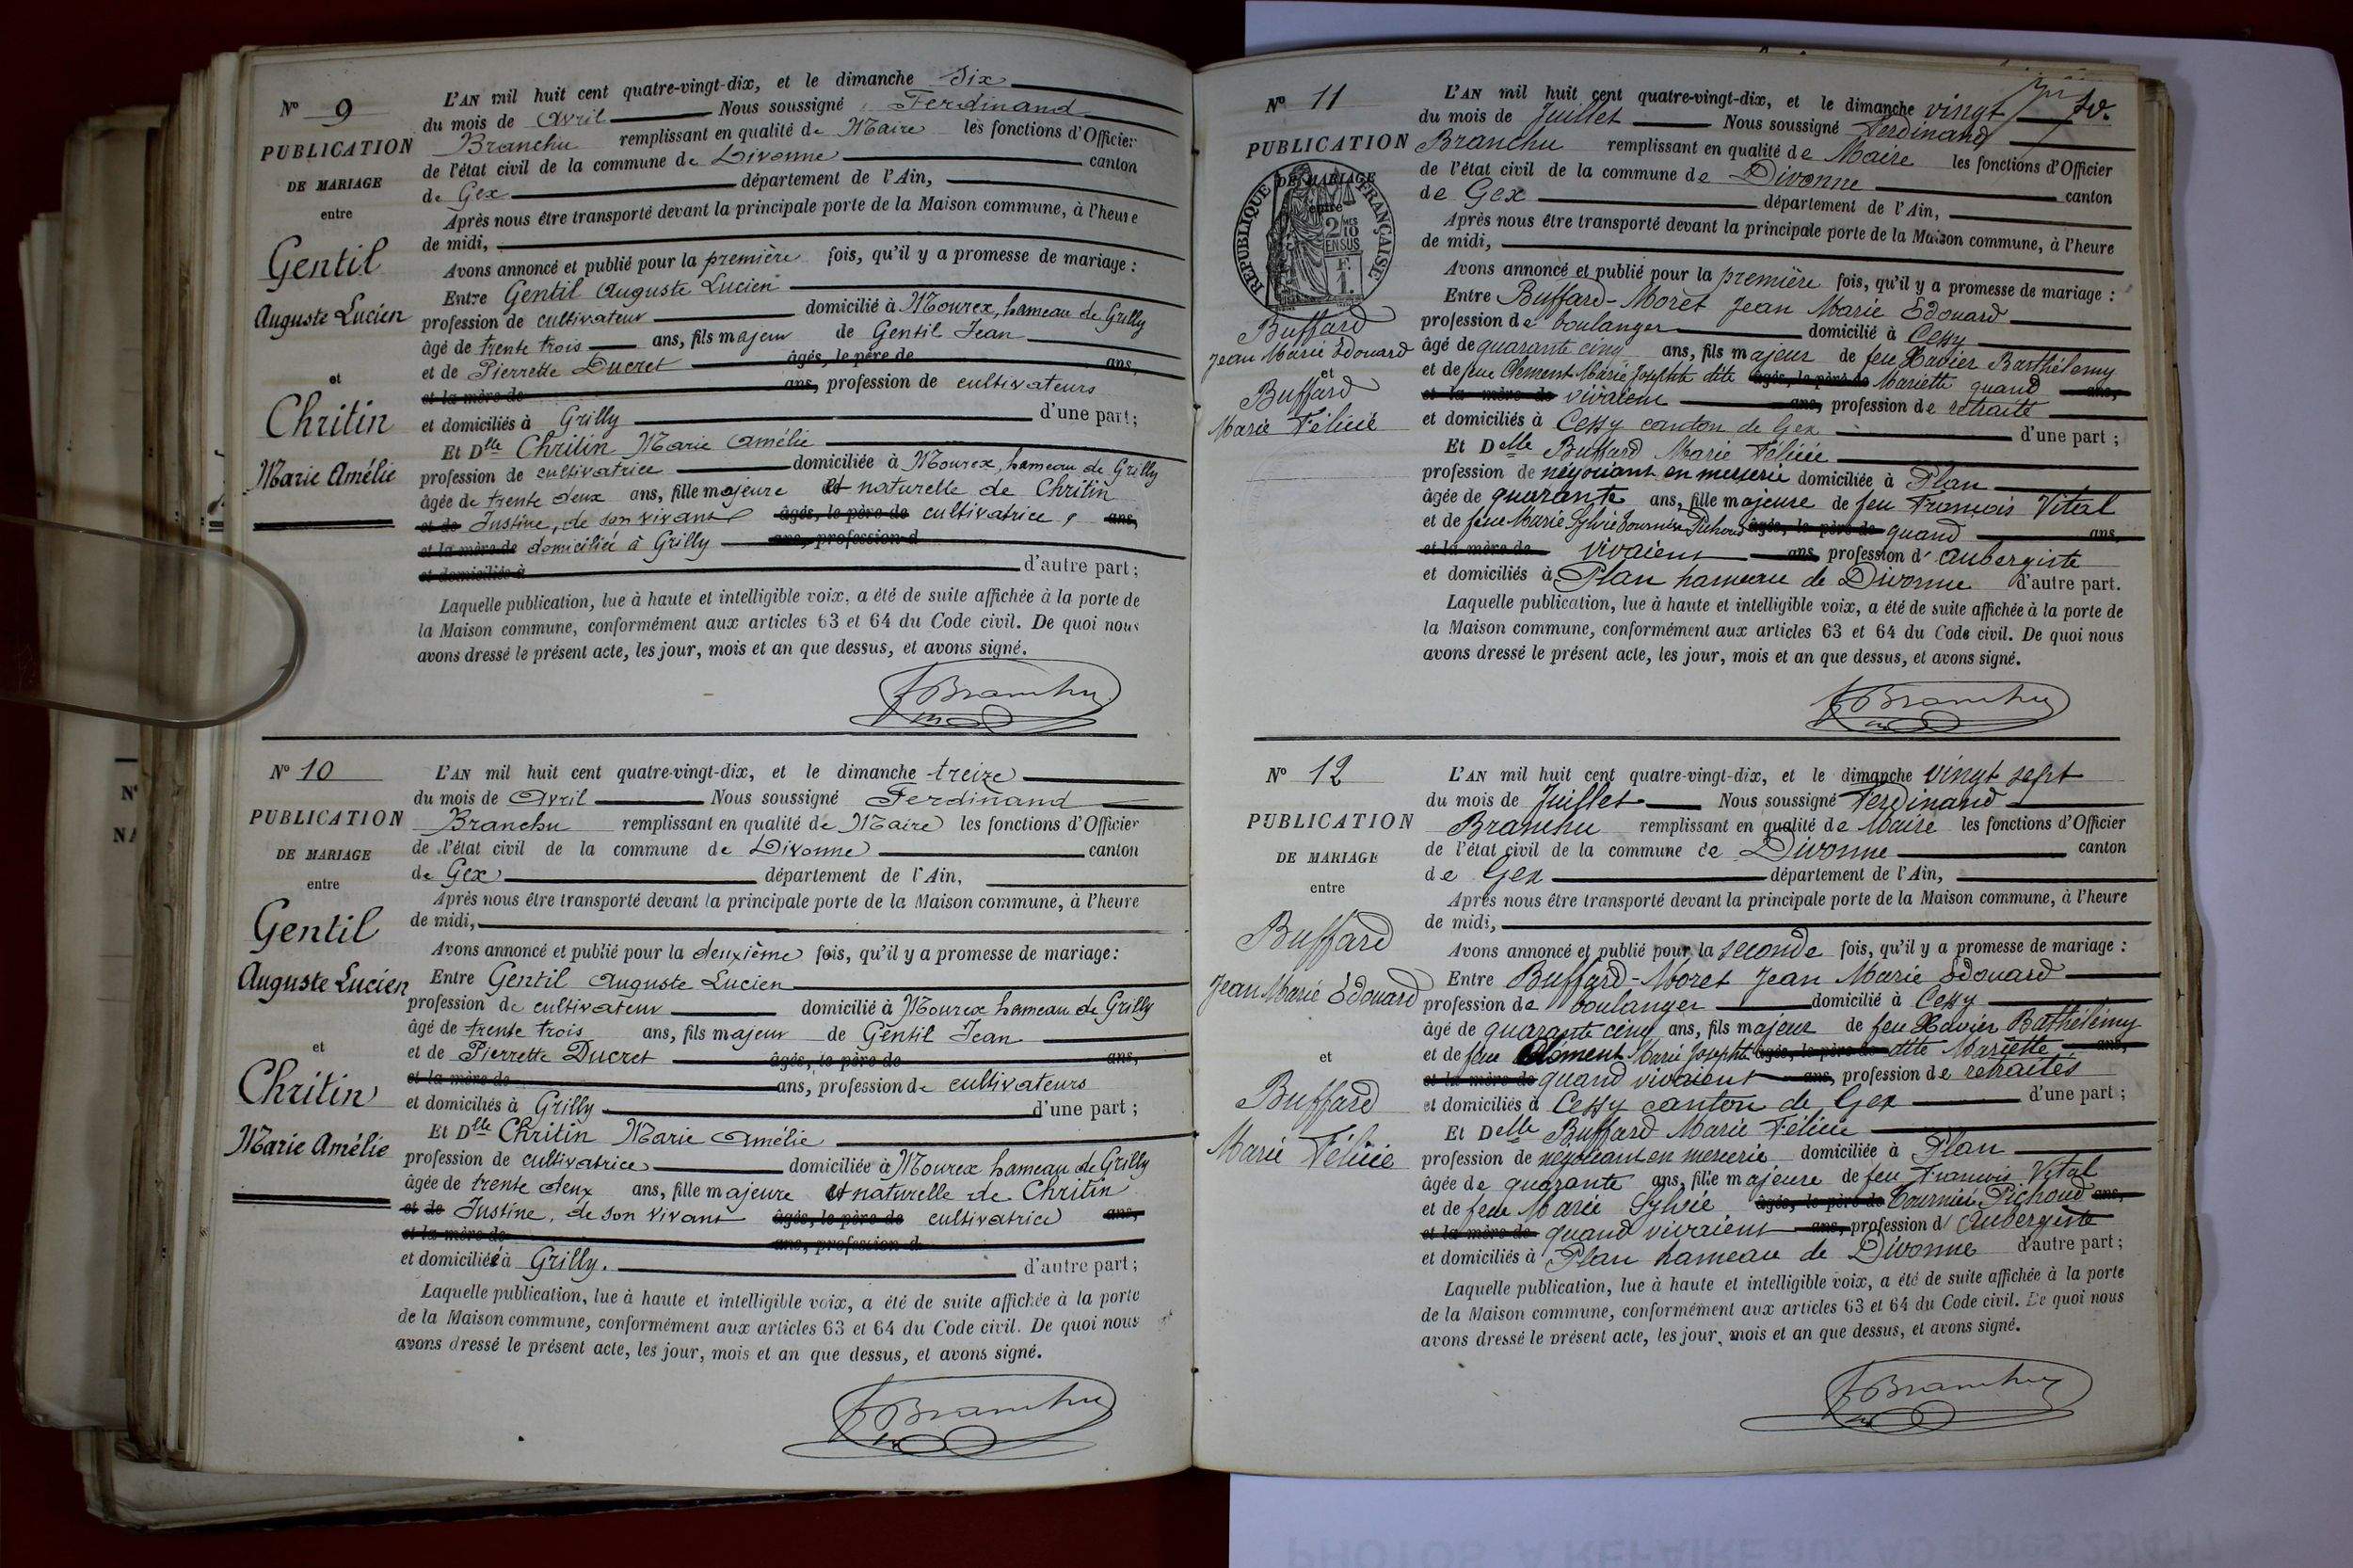 N° 9
PUBLICATION
DE MARIAGE
entre
Gentil
Auguste Lucien
et
Chritin
Marie Amélie
L'AN mil huit cent quatre-vingt-dix, et le dimanche Six
du mois de Avril Nous soussigné Ferdinand
Branchu remplissant en qualité de Maire les fonctions d'Officier
de l'état civil de la commune de Divonne canton
de Gex département de l'Ain,
Après nous être transporté devant la principale porte de la Maison commune, à l'heure
de midi,
Avons annoncé et publié pour la première fois, qu'il y a promesse de mariage :
Entre Gentil Auguste Lucien
profession de cultivateur domicilié à Mourex, hameau de Grilly
âgé de trente trois ans, fils majeur de Gentil Jean
et de Pierrette Ducret âgés, le père de ans,
et la mère de ans, profession de cultivateurs
et domiciliés à Grilly d'une part ;
Et Dlle Chritin Marie Amélie
profession de cultivatrice domiciliée à Mourex, hameau de Grilly
âgée de trente deux ans, fille majeure et naturelle de Chritin
et de Justine, de son vivant âgés, le père de cultivatrice, ans,
et la mère de domiciliée à Grilly ans, profession d
et domiciliés à d'autre part ;
Laquelle publication, lue à haute et intelligible voix, a été de suite affichée à la porte de
la Maison commune, conformément aux articles 63 et 64 du Code civil. De quoi nous
avons dressé le présent acte, les jour, mois et an que dessus, et avons signé.
F Branchu
N° 10
PUBLICATION
DE MARIAGE
entre
Gentil
Auguste Lucien
et
Chritin
Marie Amélie
L'AN mil huit cent quatre-vingt-dix, et le dimanche treize
du mois de Avril Nous soussigné Ferdinand
Branchu remplissant en qualité de Maire les fonctions d'Officier
de l'état civil de la commune de Divonne canton
de Gex département de l'Ain,
Après nous être transporté devant la principale porte de la Maison commune, à l'heure
de midi,
Avons annoncé et publié pour la deuxième fois, qu'il y a promesse de mariage :
Entre Gentil Auguste Lucien
profession de cultivateur domicilié à Mourex hameau de Grilly
âgé de trente trois ans, fils majeur de Gentil Jean
et de Pierrette Ducret âgés, le père de ans,
et la mère de ans, profession de cultivateurs
et domiciliés à Grilly d'une part ;
Et Dlle Chritin Marie Amélie
profession de cultivatrice domiciliée à Mourex hameau de Grilly
âgée de trente deux ans, fille majeure et naturelle de Chritin
et de Justine, de son vivant âgés, le père de cultivatrice ans,
et la mère de ans, profession d
et domiciliée à Grilly. d'autre part ;
Laquelle publication, lue à haute et intelligible voix, a été de suite affichée à la porte
de la Maison commune, conformément aux articles 63 et 64 du Code civil. De quoi nous
avons dressé le présent acte, les jour, mois et an que dessus, et avons signé.
F Branchu
N° 11
PUBLICATION
DE MARIAGE
entre
RÉPUBLIQUE FRANÇAISE
2/10
EN SUS
F.
1.
Buffard
Jean Marie Edouard
et
Buffard
Marie Félicie
L'AN mil huit cent quatre-vingt-dix, et le dimanche vingt
du mois de Juillet Nous soussigné Ferdinand
Branchu remplissant en qualité de Maire les fonctions d'Officier
de l'état civil de la commune de Divonne canton
de Gex département de l'Ain,
Après nous être transporté devant la principale porte de la Maison commune, à l'heure
de midi,
Avons annoncé et publié pour la première fois, qu'il y a promesse de mariage :
Entre Buffard-Moret Jean Marie Edouard
profession de boulanger domicilié à Cessy
âgé de quarante cinq ans, fils majeur de feu Xavier Barthélemy
et de feue Clément Marie Josephte dite âgés, le père de Mariette quand ans,
et la mère de vivaient ans, profession de retraité
et domiciliés à Cessy canton de Gex d'une part ;
Et Delle Buffard Marie Félicie
profession de négociant en mercerie domiciliée à Plan
âgée de quarante ans, fille majeure de feu François Vital
et de feue Marie Sylvie Tournier Pichoud âgés, le père de quand ans,
et la mère de vivaient ans, profession d' aubergiste
et domiciliés à Plan hameau de Divonne d'autre part.
Laquelle publication, lue à haute et intelligible voix, a été de suite affichée à la porte de
la Maison commune, conformément aux articles 63 et 64 du Code civil. De quoi nous
avons dressé le présent acte, les jour, mois et an que dessus, et avons signé.
F Branchu
N° 12
PUBLICATION
DE MARIAGE
entre
Buffard
Jean Marie Edouard
et
Buffard
Marie Félicie
L'AN mil huit cent quatre-vingt-dix, et le dimanche vingt sept
du mois de Juillet Nous soussigné Ferdinand
Branchu remplissant en qualité de Maire les fonctions d'Officier
de l'état civil de la commune de Divonne canton
de Gex département de l'Ain,
Après nous être transporté devant la principale porte de la Maison commune, à l'heure
de midi,
Avons annoncé et publié pour la seconde fois, qu'il y a promesse de mariage :
Entre Buffard-Moret Jean Marie Edouard
profession de boulanger domicilié à Cessy
âgé de quarante cinq ans, fils majeur de feu Xavier Bathélémy
et de feue Clément Marie Josephte âgés, le père de dite Mariette ans,
et la mère de quand vivaient ans, profession de retraités
et domiciliés à Cessy canton de Gex d'une part ;
Et Delle Buffard Marie Félicie
profession de négociant en mercerie domiciliée à Plan
âgée de quarante ans, fille majeure de feu François Vital
et de feue Marie Sylvie âgés, le père de Tournier Pichoud ans,
et la mère de quand vivaient ans, profession d' Aubergiste
et domiciliés à Plan hameau de Divonne d'autre part ;
Laquelle publication, lue à haute et intelligible voix, a été de suite affichée à la porte
de la Maison commune, conformément aux articles 63 et 64 du Code civil. De quoi nous
avons dressé le présent acte, les jour, mois et an que dessus, et avons signé.
F Branchu